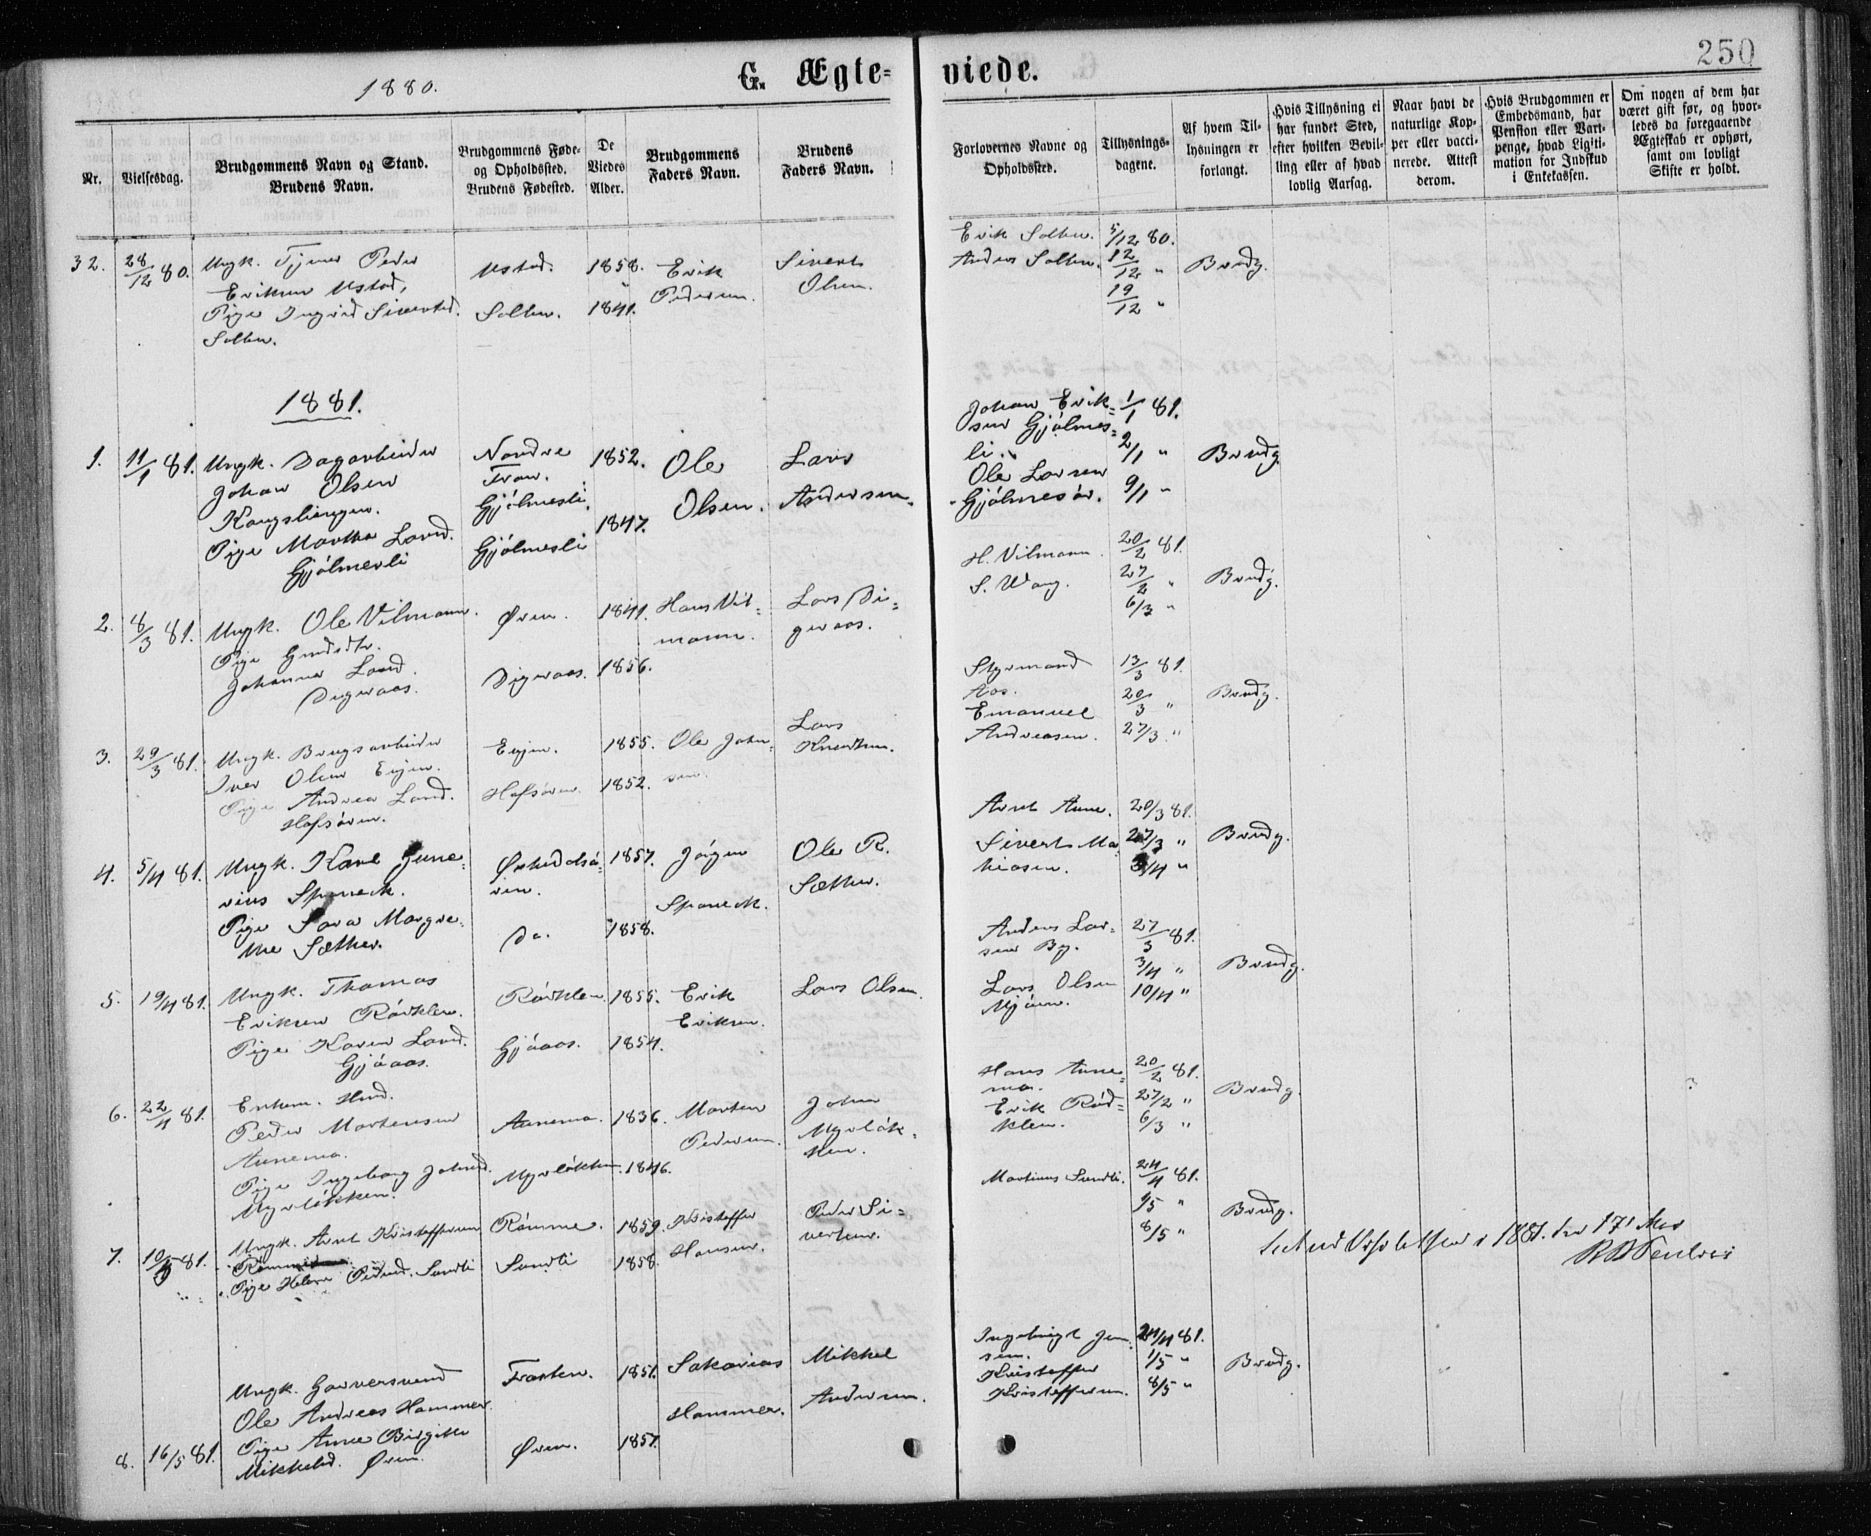 250
1880.
G. Ægte=
viede.
Nr.
Vielsesdag.
Brudgommens Navn og Stand.
Brudens Navn.
Brudgommens Føde-
og Opholdssted.
Brudens Fødested.
De
Viedes
Alder.
Brudgommens
Faders Navn.
Brudens
Faders Navn.
Forlovernes Navne og
Opholdssted.
Tillysnings-
dagene.
Af hvem Til-
lysningen er
forlangt.
Hvis Tillysning ei
har fundet Sted,
efter hvilken Bevil-
ling eller af hvad
lovlig Aarsag.
Naar havt de
naturlige Kop-
per eller vacci-
nerede. Attest
derom.
Hvis Brudgommen er
Embedsmand, har
Pension eller Vart-
penge, hvad Ligiti-
mation for Indskud
i Enkekassen.
Om nogen af dem har
været gift før, og hvor-
ledes da foregaaende
Ægteskab er ophørt,
samt om lovligt
Skifte er holdt.
32. 28/12 80. Ungk. Peder
Eriksen Ustad,
Pige Ingrid Sivertsd.
Solten.
Ustad. 1858.
Solten. 1841.
Erik
Pedersen.
Siverts
Olsen.
Erik Solten. 5/12 80.
Anders Solten. 12/12 " Brudg.
19/12 "
1881.
1. 11/1 81. Ungk. Dagarbeider
Johan Olsen
Pige Martha Larsd.
Gjølmesli
Nordre
Gjølmesli.
Gjølmesli
1852.
1847.
Ole
Olsen.
Lars
Andersen.
Johan Erik=
sen Gjølmes=
li.
Ole Larsen
Gjølmesør.
1/1 81.
2/1 "
9/1 "
Brudg
2. 8/3 81. Ungk. Ole Vilmann.
Pige
Johanna Larsd.
Digeraas.
Øren. 1841.
Digeraas. 1856.
Hans Vil=
mann.
Lars Di=
geraas.
H. Vilmann. 20/2 81.
S. Wang. 27/2 " Brudg.
6/3 "
3. 29/3 81. Ungk. Brugsarbeider
Iver Olsen Evjen.
Pige Andrea Larsd.
Hofsøren.
Evjen. 1855.
Hofsøren 1852.
Ole John=
sen.
Lars
Knudsen.
Styrmand
Aas.
Emanuel
Andreasen.
13/3 81.
20/3 "
27/3 "
Brudg.
4. 5/4 81. Ungk. Karl June=
rius Sponeck.
Pige Sara Margre=
the Sæther.
Orkedalsø=
ren.
Do.
1857.
1858.
Jørgen
Sponeck.
Ole R.
Sæther.
Arnt Aune. 20/3 81.
Sivert Ma= 27/3 " Brudg.
thiasen. 3/4 "
5. 19/4 81. Ungk. Thomas
Eriksen
Pige Karen Larsd.
Gjøaas.
1855.
Gjøaas. 1854.
Erik
Eriksen.
Lars Olsen.
Anders Lar=
sen By.
Lars Olsen
Mjøen.
27/3 81.
3/4 "
10/4 "
Brudg.
6. 22/4 81. Enkem.
Peder Mortensen
Aunemo.
Pige Ingeborg Johnsd.
Myrløkken.
Aunemo. 1836.
Myrløkken. 1846.
Morten
Pedersen.
John
Myrløk=
ken.
Hans Aune=
mo.
Erik Rød=
klem.
20/2 81.
27/2 "
6/3 "
Brudg
7. 10/5 81. Ungk. Arnt Kristoffersen
Pige Pedersd. Sundli
Rømme. 1859.
Sundli 1858.
Kristoffer
Hansen.
Peder Si=
vertsen.
Martinus Sundli. 24/4 81.
1/5 " Brudg.
8/5 "
1881. 17' Mai
8. 16/5 81. Ungk. Garversvend
Ole Andreas Hammer.
Pige Anne Birgitte
Mikkelsd. Øren.
Frosten. 1851.
Øren. 1857.
Sakarias
Hammer.
Mikkel
Andersen.
Ingebrigt Jen=
sen.
Kristoffer
Kristoffersen.
24/4 81.
1/5 "
8/5 "
Brudg.